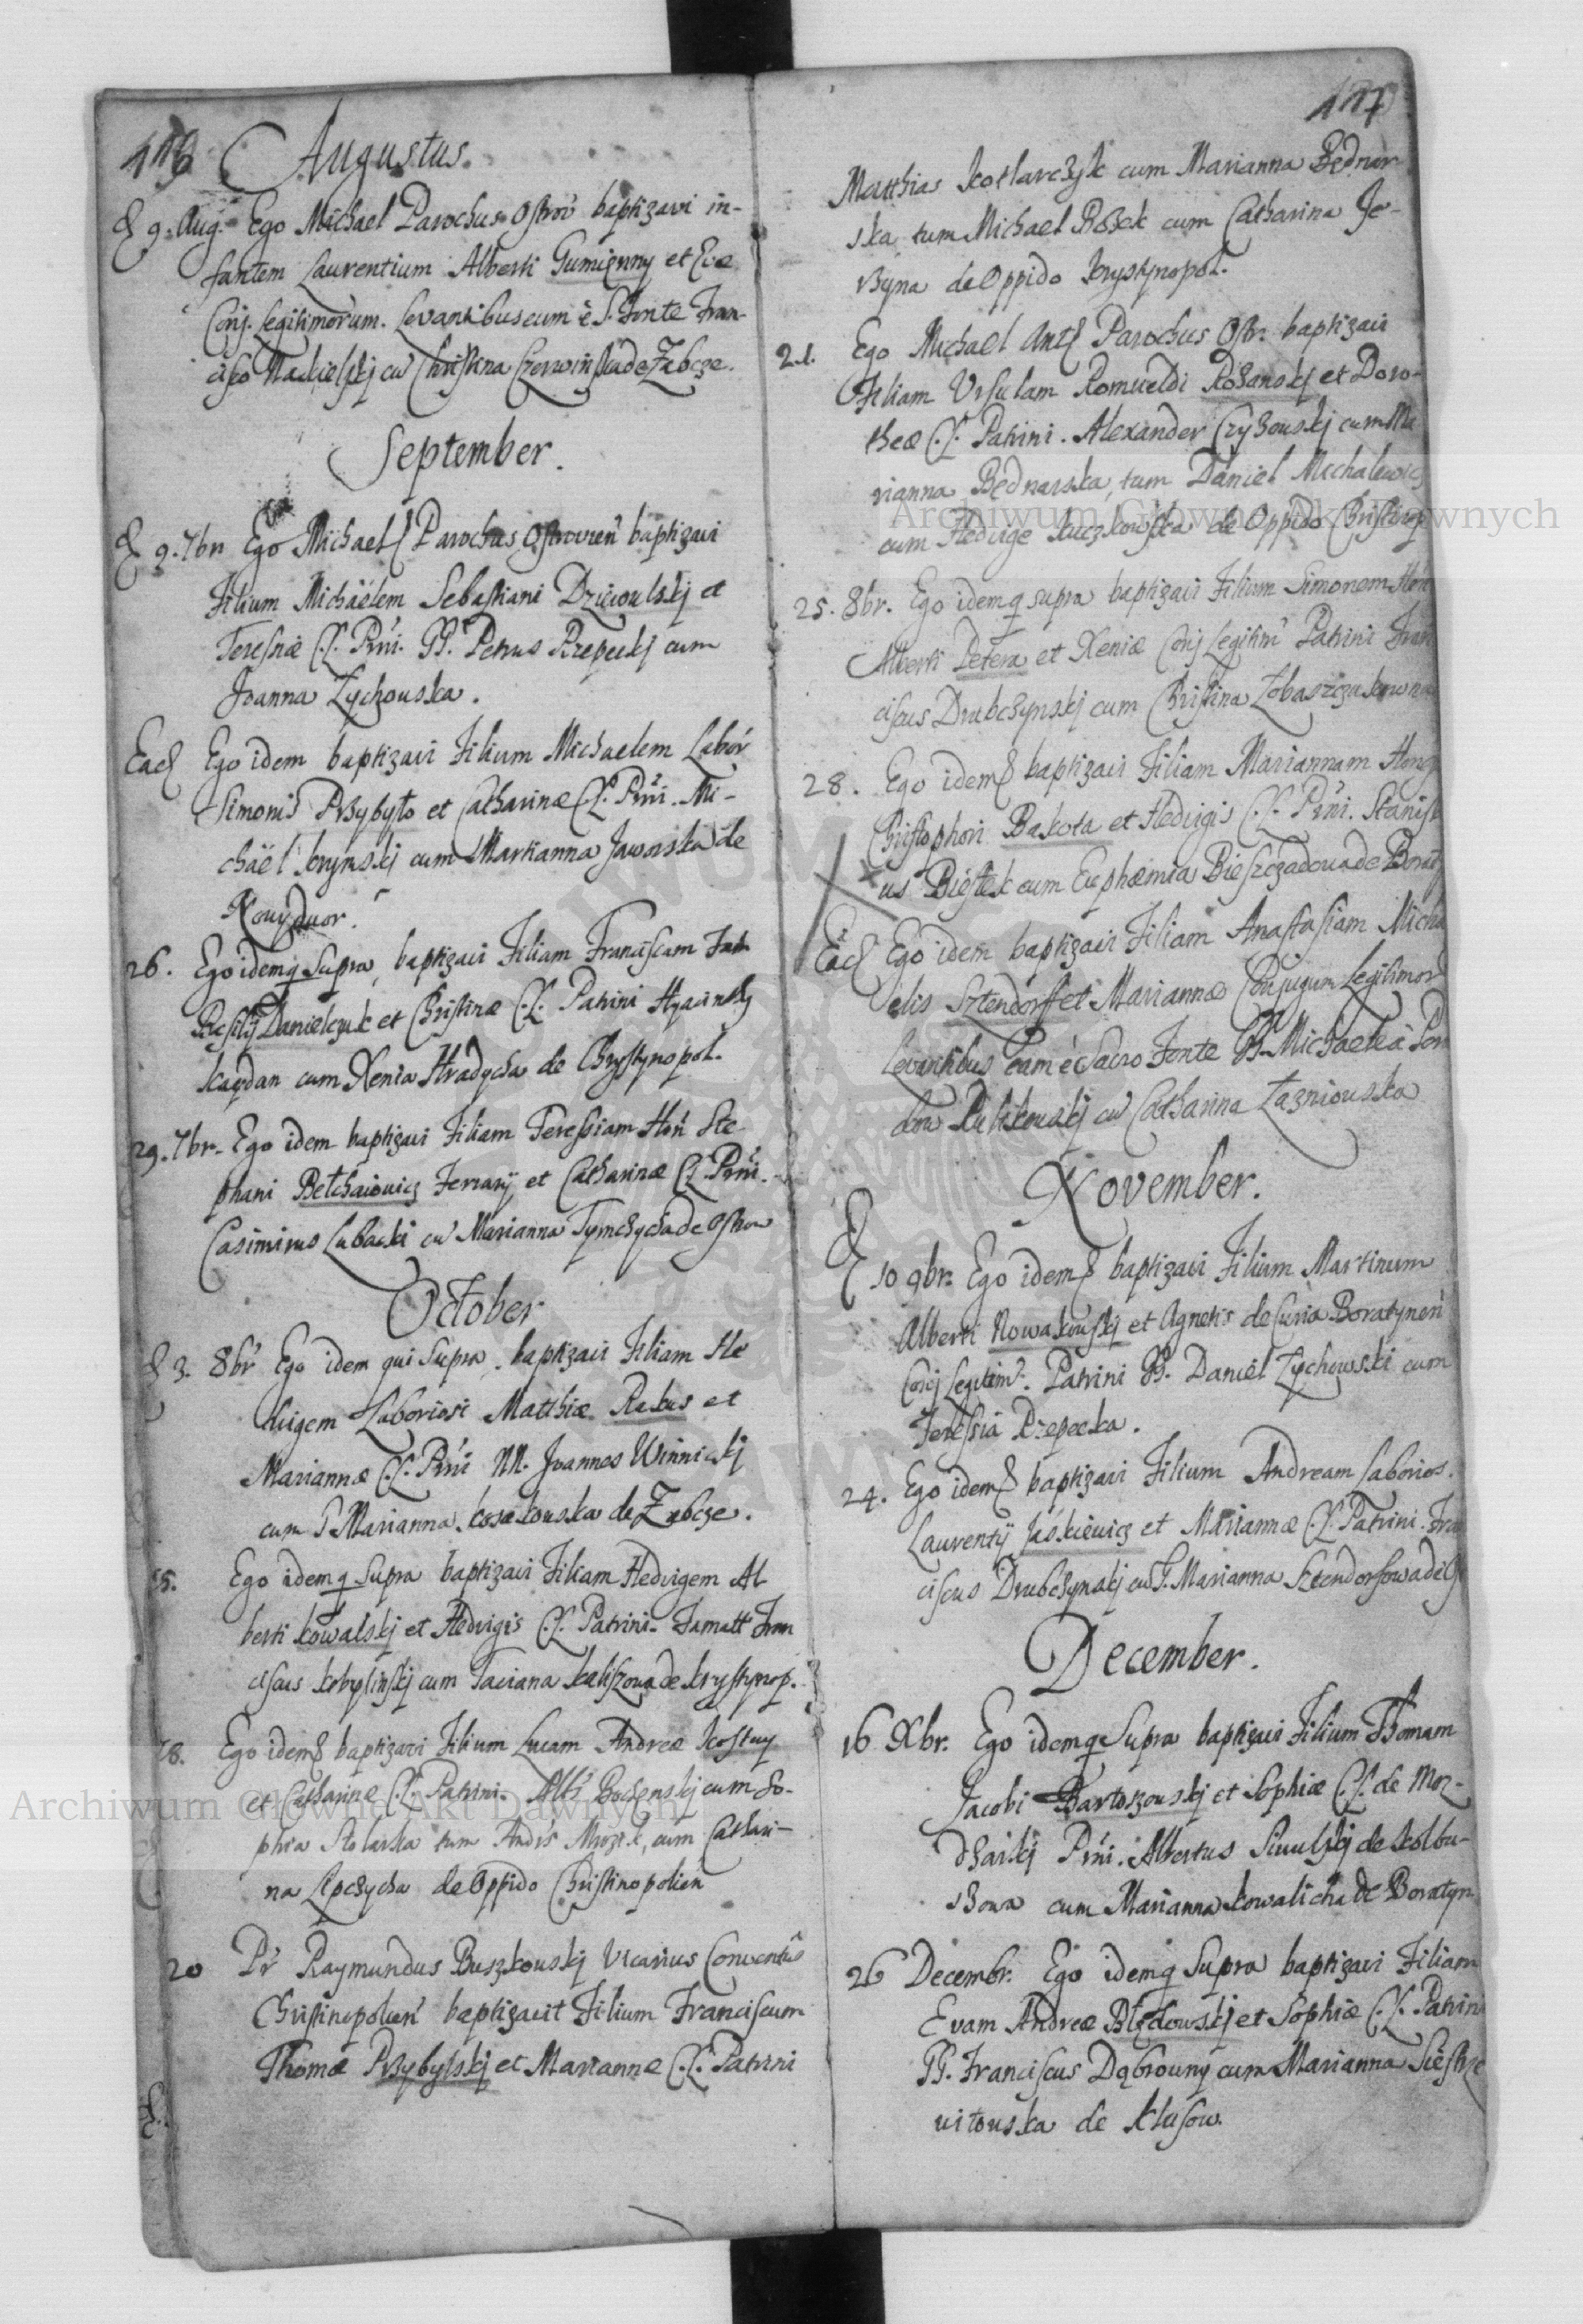 116 Augustus.
9. Aug. Ego Michael Parochus Ostrov baptizavi in-
fantem Laurentium Alberti Gumienny et Evæ
Conj. Legitimorum. Levantibus eum è S. Fonte Fran-
cisco Nackielskj cu Christina Czerwinska de Zabcze.
September.
9. 7br Ego Michael Parochus Ostrovien baptizavi
Filium Michäelem Sebastiani Dziewulskj et
Teresiæ C.L. Prni. GG. Petrus Rzepeckj cum
Joanna Zychouska.
Ead Ego idem baptizavi Filium Michaelem Labor
Simonis Przybyło et Catharinæ C.L. Prni. Mi-
chäel Krynskj cum Marianna Jaworska de
Nouydvor.
26. Ego idem q supra, baptizavi Filiam Franciscam
Basilij Danielczuk et Christinæ C.L. Patrini Hyacinthy
Kaydan cum Xenia Hradycha de Chrystynopol.
29. 7br. Ego idem baptizavi Filiam Teressiam Hon Ste
phani Betchaiouicz Ferrarij et Catharinæ C.L. Prni.
Casimirus Lubacki cu Marianna Tymczycha de Ostrow
October
3. 8br Ego idem qui supra, baptizavi Filiam He
duigem Laboriosi Matthiæ Rakus et
Mariannæ C.L. Prni NN. Joannes Winnickj
cum G Marianna Kosakouska de Zabcze.
15. Ego idem q supra baptizavi Filiam Hedvigem Al
berti Kowalskj et Hedvigis C.L. Patrini. Famatt Fran
ciscus Kobylinskj cum Taciana Kaliszoua de Krystynop.
18. Ego idem baptizavi Filium Lucam Andreæ Kostuy
et Catharinæ C.L. Patrini. Albs Bochenskj cum So-
phia Stolarka tum Andrs Mrozik, cum Cathari-
na Lipczycha de Oppido Christinopolien
20 Pr Raymundus Buszkouskj Vicarius Conventus
Christinopolien baptizavit Filium Franciscum
Thomæ Przybylskj et Mariannæ C.L. Patrini
117
Matthias Kotlarczyk cum Marianna Bednar-
ska tum Michael Rożek cum Catharina Je-
rzyna de Oppido Krystynopol.
21. Ego Michael Ants Parochus Ostr. baptizavi
Filiam Ursulam Romualdi Rożanskj et Doro-
theæ C.L. Patrini. Alexander Czyżouskj cum Ma
rianna Bednarska, tum Daniel Michalewicz
cum Hedvige Kuczkowska de Oppido Christinop
25. 8br. Ego idem q supra baptizavi Filium Simonem Hon
Alberti Petera et Xeniæ Conj Legitim Patrini Fran
ciscus Drubczynskj cum Christina Łobaszczukowna
28. Ego idem baptizavi Filiam Mariannam Hon
Christophori Bakota et Hedvigis C.L. Prni. Stanisl
us Biestek cum Euphæmia Bieszczadoua de Borat
Ead Ego idem baptizavi Filiam Anastasiam Micha
elis Sztendorff et Mariannæ Conjugum Legitimor
Levantibus eam è Sacro Fonte G. Michaele
Rulikouskj cu Catharina Łazniouska
November.
10 9br. Ego idem baptizavi Filium Martinum
Alberti Nowakouskj et Agnetis de Curia Boratynen
Conj Legitim. Patrini G. Daniel Zychowski cum
Teressia Rzepecka.
24. Ego idem baptizavi Filium Andream Laborios.
Laurentij Jaskiewicz et Mariannæ C.L. Patrini. Fran
ciscus Drubczynskj cu G. Marianna Sztendorfowa de
December.
16 Xbr. Ego idem q supra baptizavi Filium Thomam
Jacobi Bartoszouskj et Sophiæ C.L. de Moz-
dzaikj Prni. Albertus Siuulskj de Kolbu-
szowa cum Marianna Kowalicha de Boratyn
26 Decembr. Ego idem q supra baptizavi Filiam
Evam Andreæ Błędowskj et Sophiæ C.L. Patrini
GG. Franciscus Dąbrouny cum Marianna Siestrze
vitouska de Klusow.
Archiwum Główne Akt Dawnych
Archiwum Główne Akt Dawnych